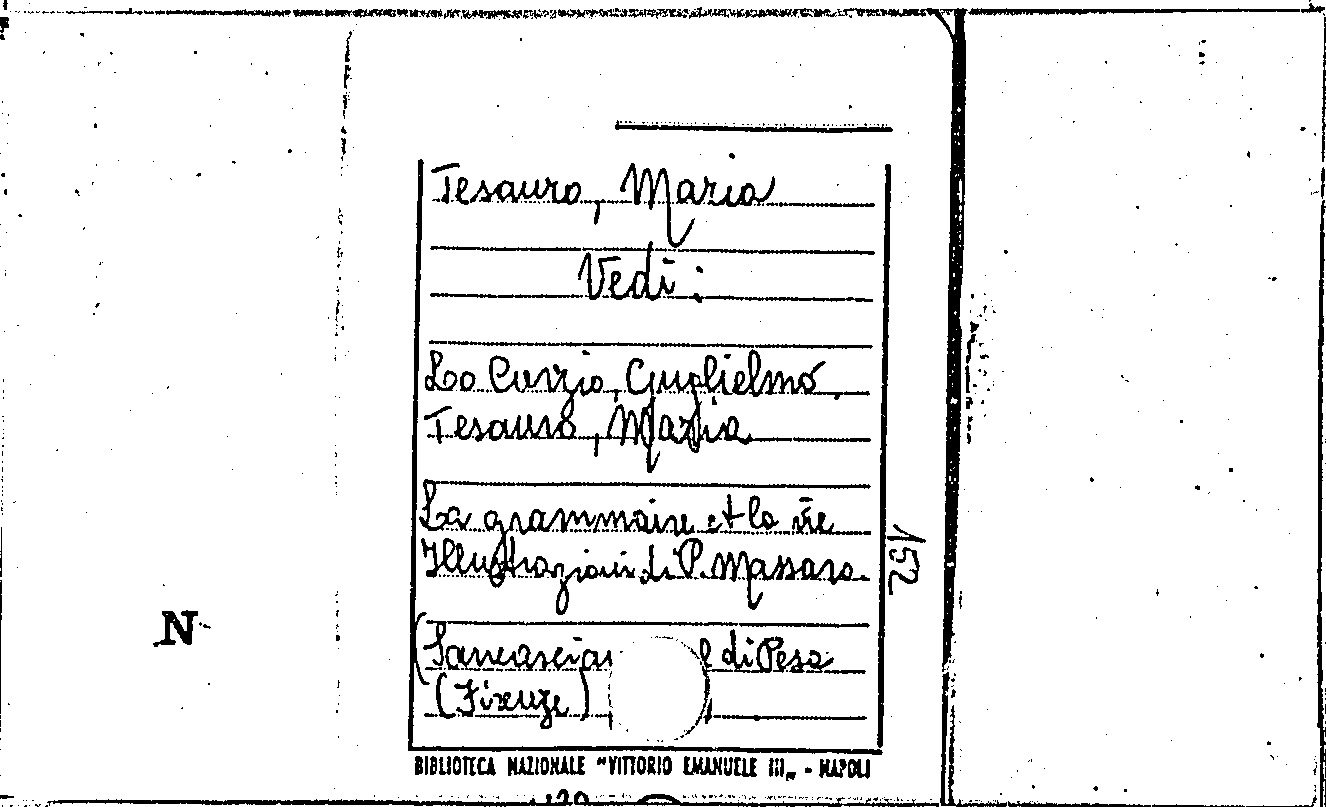 Tesauro, Maria
Vedi:
Lo Curzio, Guglielmo.
Tesauro, Maria
La grammaire et la vie
Illustrazioni di P. Massaro.
di Pesa
(Firenze)
152
N
BIBLIOTECA NAZIONALE "VITTORIO EMANUELE III„ - NAPOLI